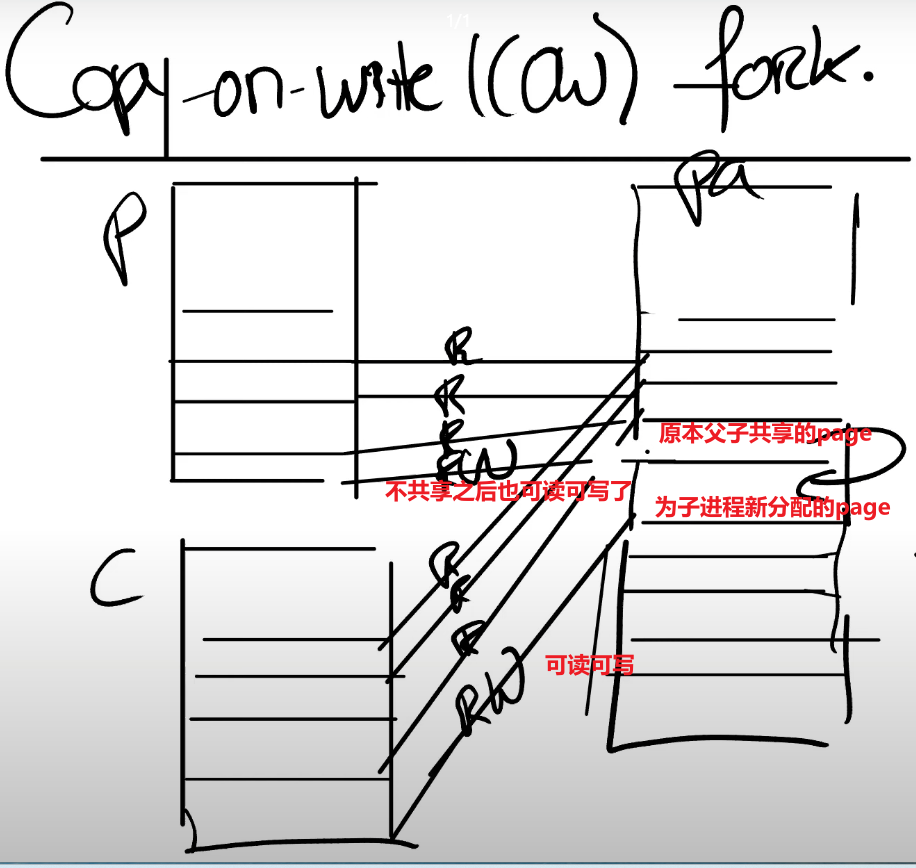 1/1
Copy-on-write (COW) fork.
pa
P
R
R
原本父子共享的page
R
RW
不共享之后也可读可写了
为子进程新分配的page
C
R
R
R
可读可写
RW